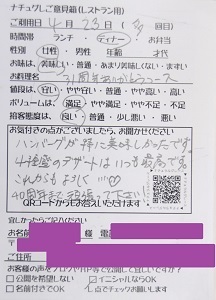 ナチュグレご意見箱(レストラン用)
ご利用日 4月23日( 回目)
時間帯 ランチ・ディナー・お弁当
性別 女性・男性 年齢 才代
お味は 美味しい・普通・あまり美味しくない・まずい
お料理名 31周年ありがとうコース
値段は 安い・やや安い・普通・やや高い・高い
ボリュームは 満足・やや満足・やや不足・不足
接客態度は 良い・普通・少し悪い・悪い
お気付きの点がございましたら、お聞かせください
ハンバーグが特に美味しかったです
4種盛のデザートはいつも最高です
これからもよろしく
40周年まで頑張って下さい
QRコードからもお答えいただけます
宜しかったらご記入ください
お名前 様 電話
〒
ご住所
お客様の声をブログやHP等で公開して宜しいですか?
公開を希望しない イニシャルならOK
名前付きでOK 点でチェックお願いします